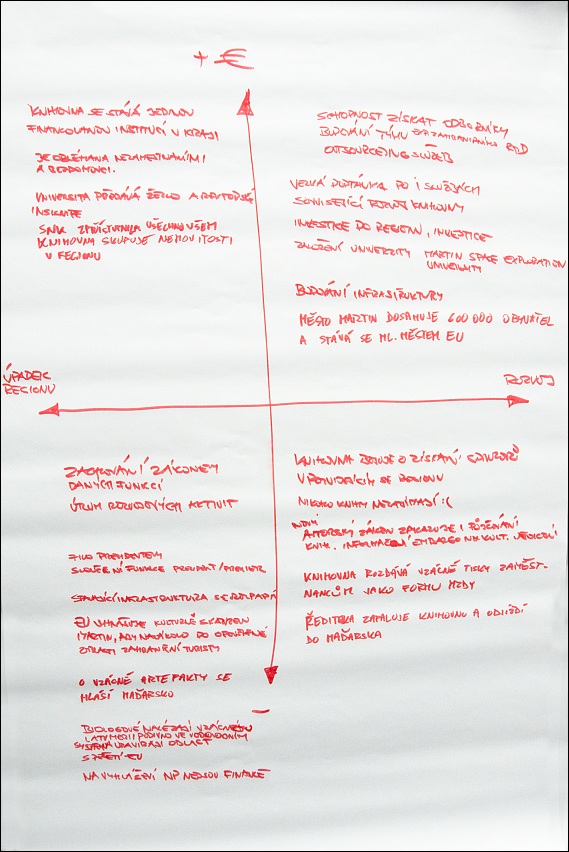 + €
KNIHOVNA SE STÁVÁ JEDINOU
FINANCOVANOU INSTITUCÍ V KRAJI
JE OBLÉHÁNA NEZAMĚSTNANÝMI
A BEZDOMOVCI.
UNIVERSITA PŘEDÁVÁ ŽEZLO A
INSIGNIE
SNK VŠECHNO VŠEM
KNIHOVNA SKUPUJE NEMOVITOSTI
V REGIONU
SCHOPNOST ZÍSKAT ODBORNÍKY
BUDOVÁNÍ TÝMU
OUTSOURCING SLUŽEB
VELKÁ POPTÁVKA PO I SLUŽBÁCH
SOUVISEJÍCÍ ROZVOJ KNIHOVNY
INVESTICE DO REGIONU, INVESTICE
ZALOŽENÍ UNIVERZITY MARTIN SPACE EXPLORATION
UNIVERSITY
BUDOVÁNÍ INFRASTRUKTURY
MĚSTO MARTIN DOSAHUJE 600 000 OBYVATEL
A STÁVÁ SE HL. MĚSTEM EU
ÚPADEK
REGIONU
ROZVOJ
ZACHOVÁNÍ ZÁKONEM
DANÝCH FUNKCÍ
ÚTLUM ROZVOJOVÝCH AKTIVIT
FICO PREZIDENTEM
SLOUČENÍ FUNKCE PREZIDENT/PREMIÉR
STÁVAJÍCÍ INFRASTRUKTURA SE ROZPADÁ
EU KULTURNĚ SKANZEN
MARTIN, ABY NALÁKALO DO OPUŠTĚNÉ
OBLASTI ZAHRANIČNÍ TURISTY
O VZÁCNÉ ARTEFAKTY SE
HLÁSÍ MAĎARSKO
–
BIOLOGOVÉ NALÉZAJÍ VZÁCNOU
LATIMÉRII PODIVNOU VE VODOVODNÍM
SYSTÉMU A UZAVÍRAJÍ OBLAST
S PEČETÍ EU
NA VYHLÁŠENÍ NP NEJSOU FINANCE
KNIHOVNA BOJUJE O ZÍSKÁNÍ SPONZORŮ
V PODMÍNKÁCH REGIONU
NIKOHO KNIHY NEZAJÍMAJÍ :(
NOVÝ
AUTORSKÝ ZÁKON ZAKAZUJE I PŮJČOVÁNÍ
KNIH. INFORMAČNÍ EMBARGO NA KULT. DĚDICTVÍ
KNIHOVNA ROZDÁVÁ VZÁCNÉ TISKY ZAMĚST-
NANCŮM JAKO FORMU MZDY
ŘEDITELKA ZAPALUJE KNIHOVNU A ODJÍŽDÍ
DO MAĎARSKA